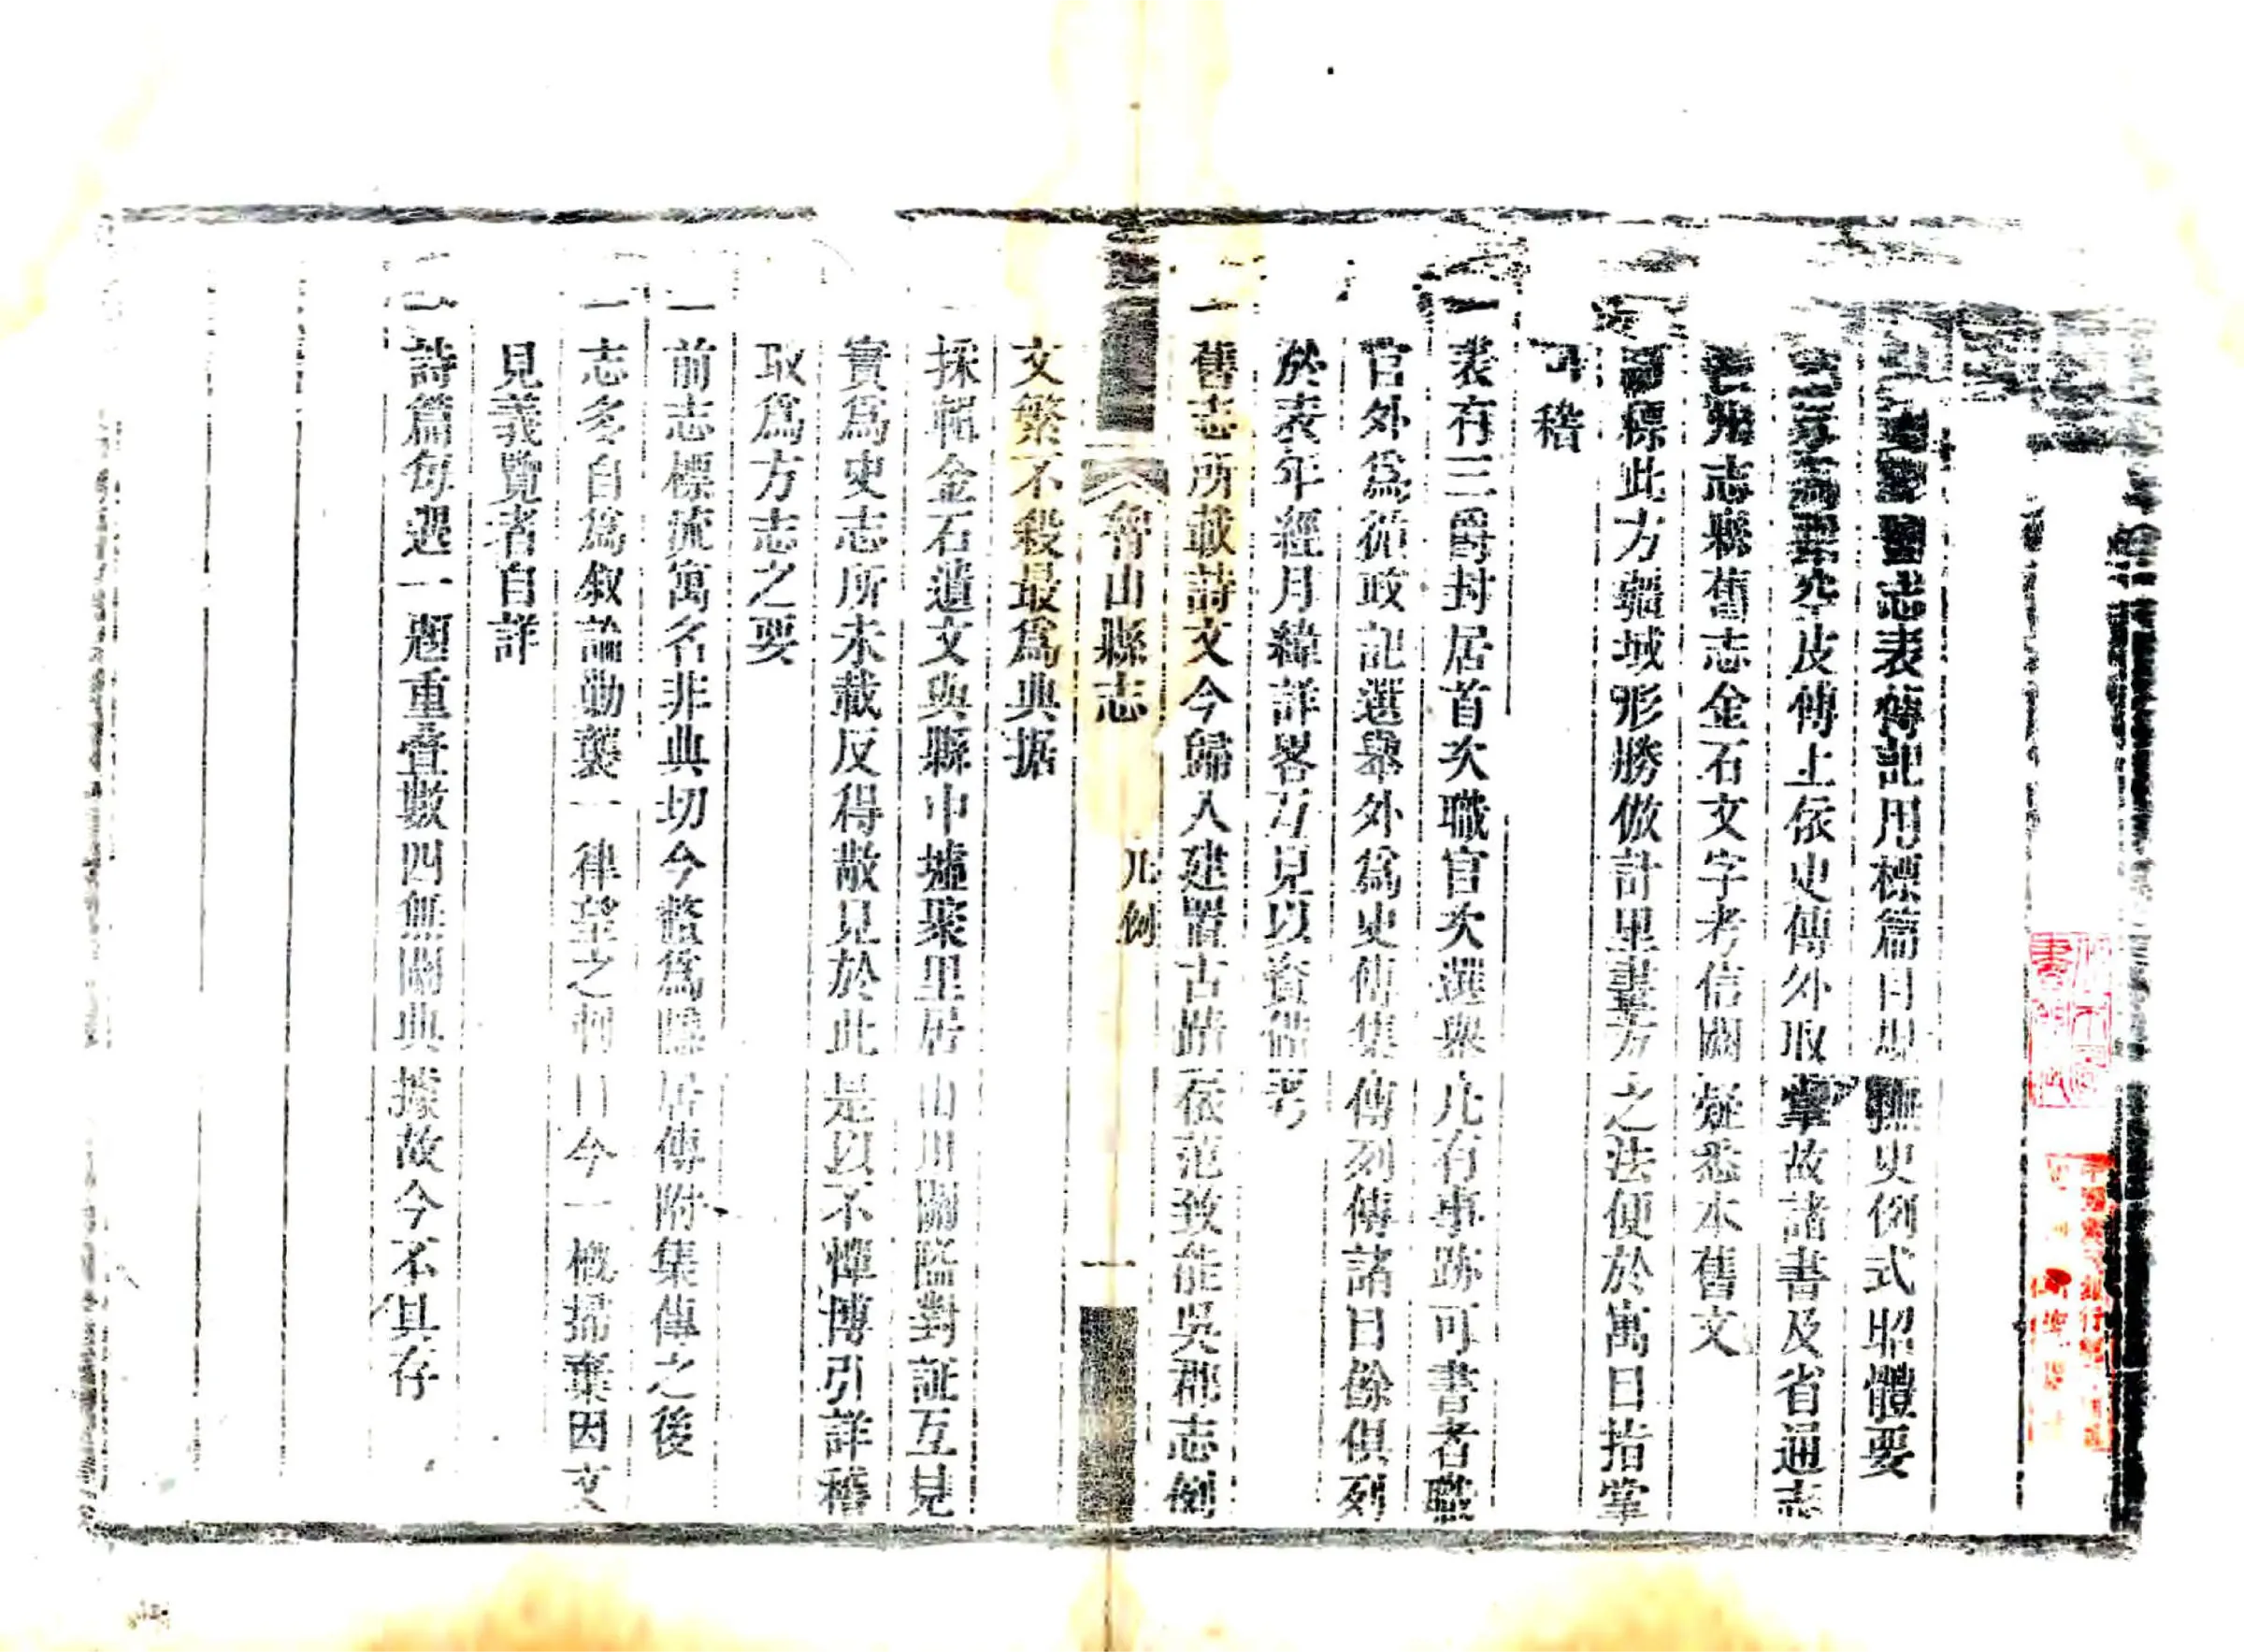 志表傳記用標篇目規撫史例式昭體要
皮傳上依史傳外取掌故諸書及省通志
州志縣舊志金石文字考信闕疑悉本舊文
標此方疆域形勝倣計里畫方之法便於寓目指掌
可稽
一表有三爵封居首次職官次選舉凡有事跡可書者職
官外爲循政記選舉外爲史傳集傳列傳諸目餘俱列
於表年經月緯詳畧互見以資備考
一舊志所載詩文今歸入建置古蹟依范致能吳郡志例
魯山縣志
凡例
一
文繁不殺最爲典据
採輯金石遺文與縣中墟聚里居山川關隘對証互見
實爲史志所未載反得散見於此是以不憚博引詳稽
取爲方志之要
一前志標流寓名非典切今整爲隱居傳附集傳之後
一志多自爲敘論勦襲一律望之刺目今一概掃棄因文
見義覽者自詳
一詩篇每選一題重疊數四無關典據故今不具存